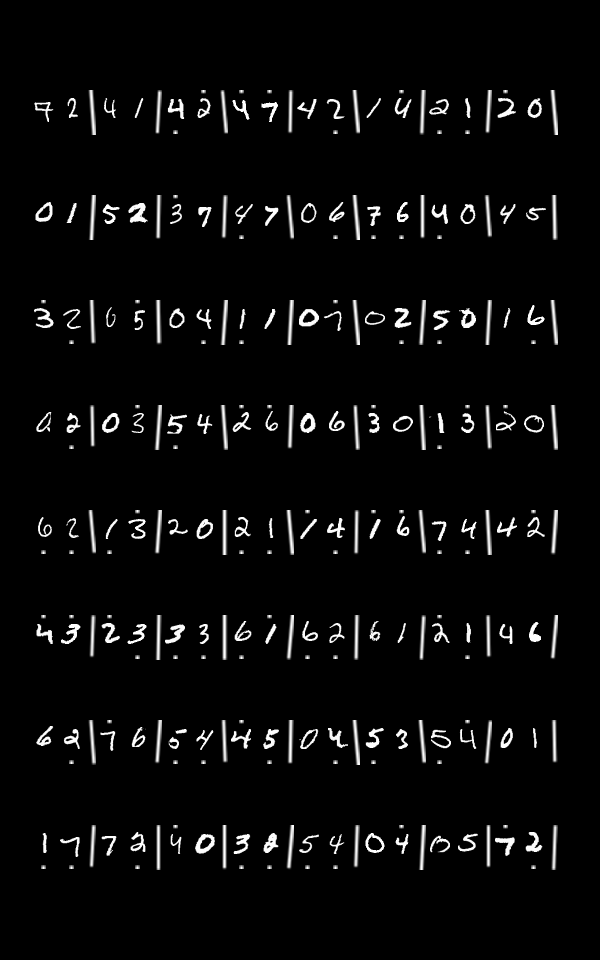 7 2 | 4 1 | 4 2 | 4 7 | 4 2 | 1 4 | 2 1 | 2 0 |
0 1 | 5 2 | 3 7 | 4 7 | 0 6 | 7 6 | 4 0 | 4 5 |
3 2 | 0 5 | 0 4 | 1 1 | 0 7 | 0 2 | 5 0 | 1 6 |
0 2 | 0 3 | 5 4 | 2 6 | 0 6 | 3 0 | 1 3 | 2 0 |
6 2 | 1 3 | 2 0 | 2 1 | 1 4 | 1 6 | 7 4 | 4 2 |
4 3 | 2 3 | 3 3 | 6 1 | 6 2 | 6 1 | 2 1 | 4 6 |
6 2 | 7 6 | 5 4 | 4 5 | 0 4 | 5 3 | 5 4 | 0 1 |
1 7 | 7 2 | 4 0 | 3 2 | 5 4 | 0 4 | 0 5 | 7 2 |